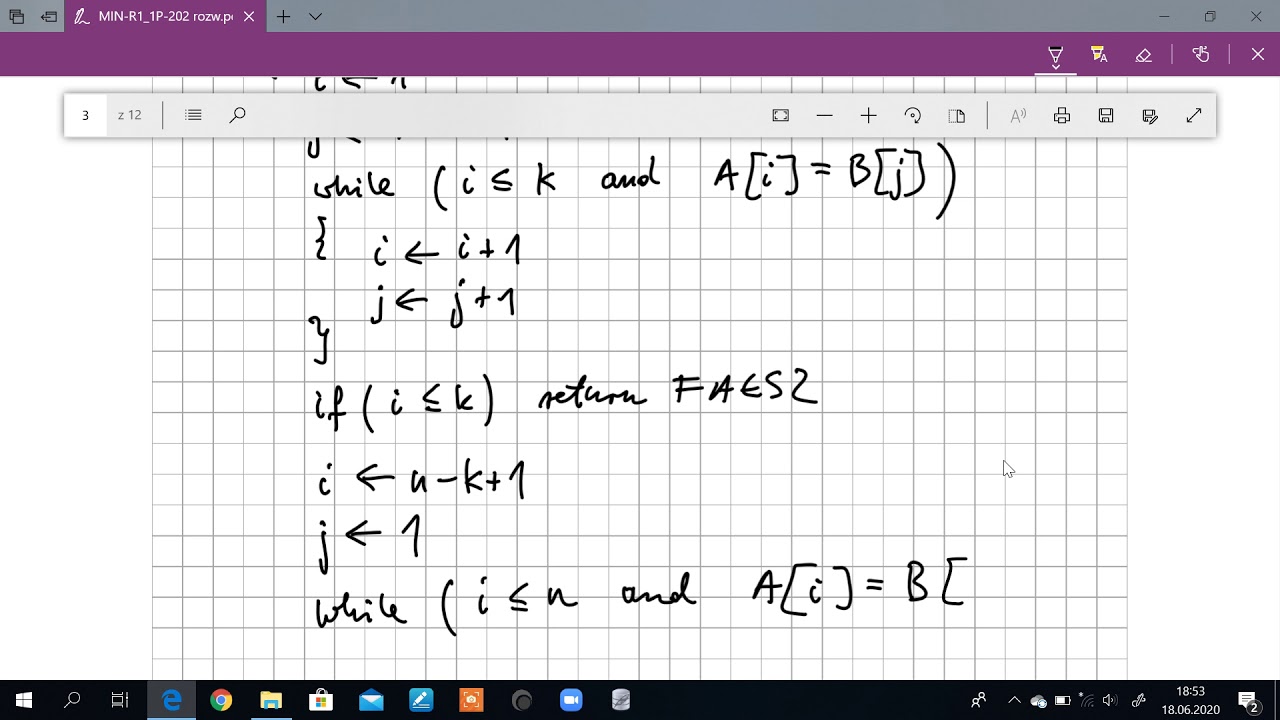 MIN-R1_1P-202 rozw.p
3 z 12
i ← 1
while ( i ≤ k and A[i] = B[j] )
{ i ← i + 1
j ← j + 1
}
if ( i ≤ k ) return FAŁSZ
i ← n - k + 1
j ← 1
while ( i ≤ n and A[i] = B [
18:53
18.06.2020
2